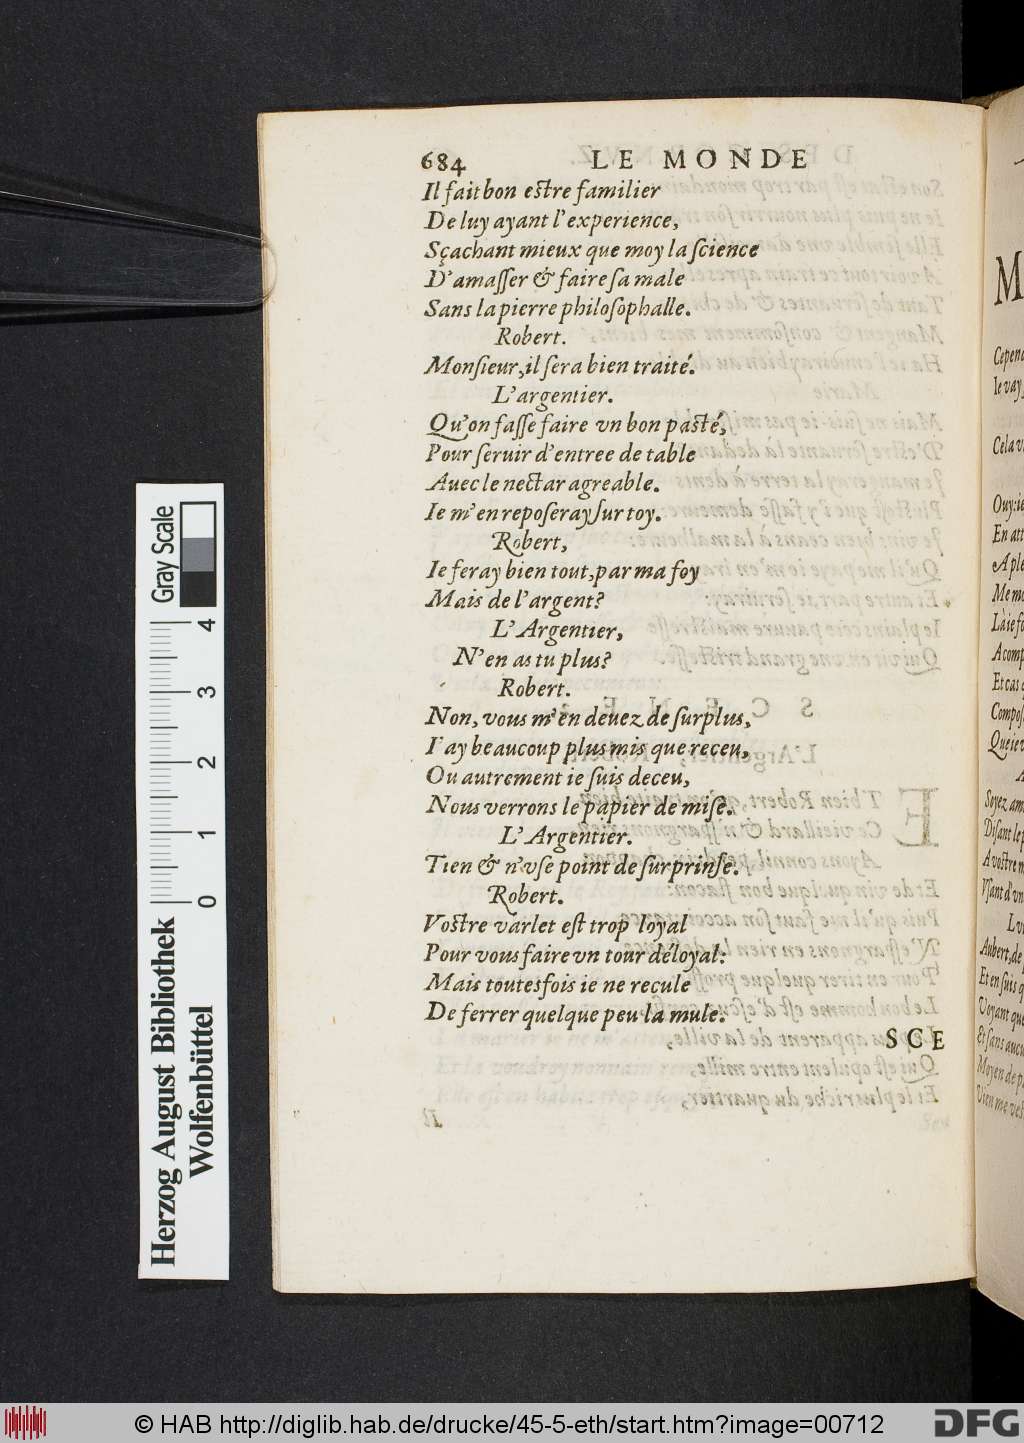 684 LE MONDE
Il fait bon estre familier
De luy ayant l'experience,
Sçachant mieux que moy la science
D'amasser & faire sa male
Sans la pierre philosophalle.
Robert.
Monsieur, il sera bien traité.
L'argentier.
Qu'on fasse faire vn bon pasté,
Pour seruir d'entree de table
Auec le nectar agreable.
Ie m'en reposeray sur toy.
Robert,
Ie feray bien tout, par ma foy
Mais de l'argent?
L'Argentier,
N'en as tu plus?
Robert.
Non, vous m'en deuez de surplus,
I'ay beaucoup plus mis que receu,
Ou autrement ie suis deceu,
Nous verrons le papier de mise.
L'Argentier.
Tien & n'vse point de surprinse.
Robert.
Vostre varlet est trop loyal
Pour vous faire vn tour déloyal:
Mais toutesfois ie ne recule
De ferrer quelque peu la mule.
SCE
M
Ie vay
Cela
Ouy: ie
En att
A ple
Me
Et cas
Que ie
Soyez
Disant le
A vostre
Vsant d'vn
Aubert, de
Et en suis
Voyant que
Et sans aucu
Moyen de
Vien me
Gray Scale
4
3
2
1
0
Herzog August Bibliothek
Wolfenbüttel
© HAB http://diglib.hab.de/drucke/45-5-eth/start.htm?image=00712
DFG